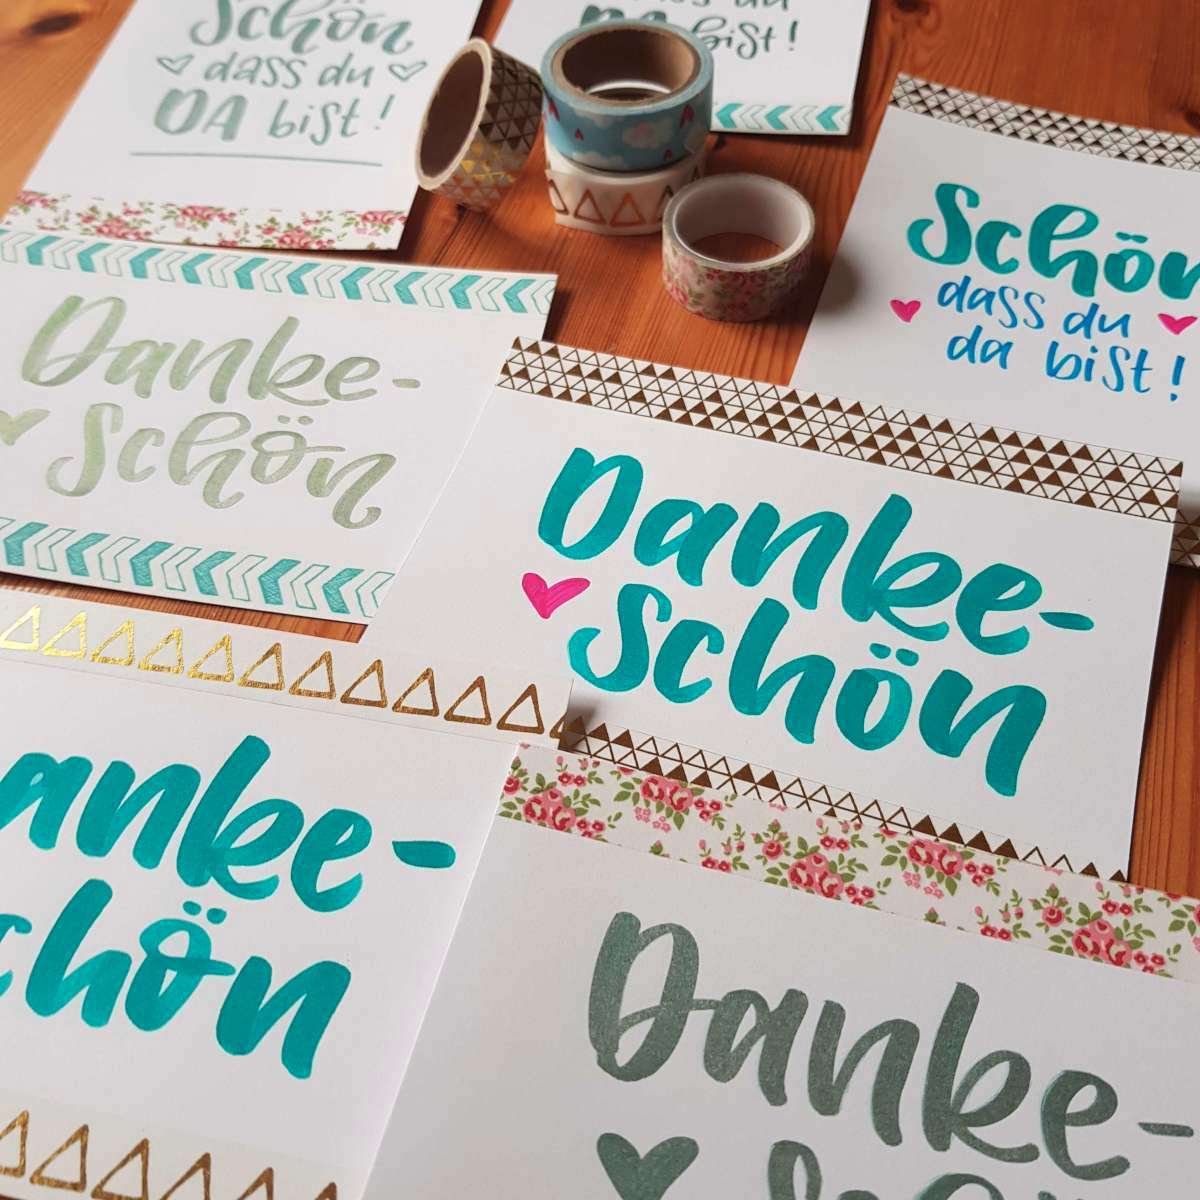 Schön
dass du
DA bist!
bist!
Schön
dass du
da bist!
Danke-
Schön
Danke-
Schön
anke-
chön
Danke-